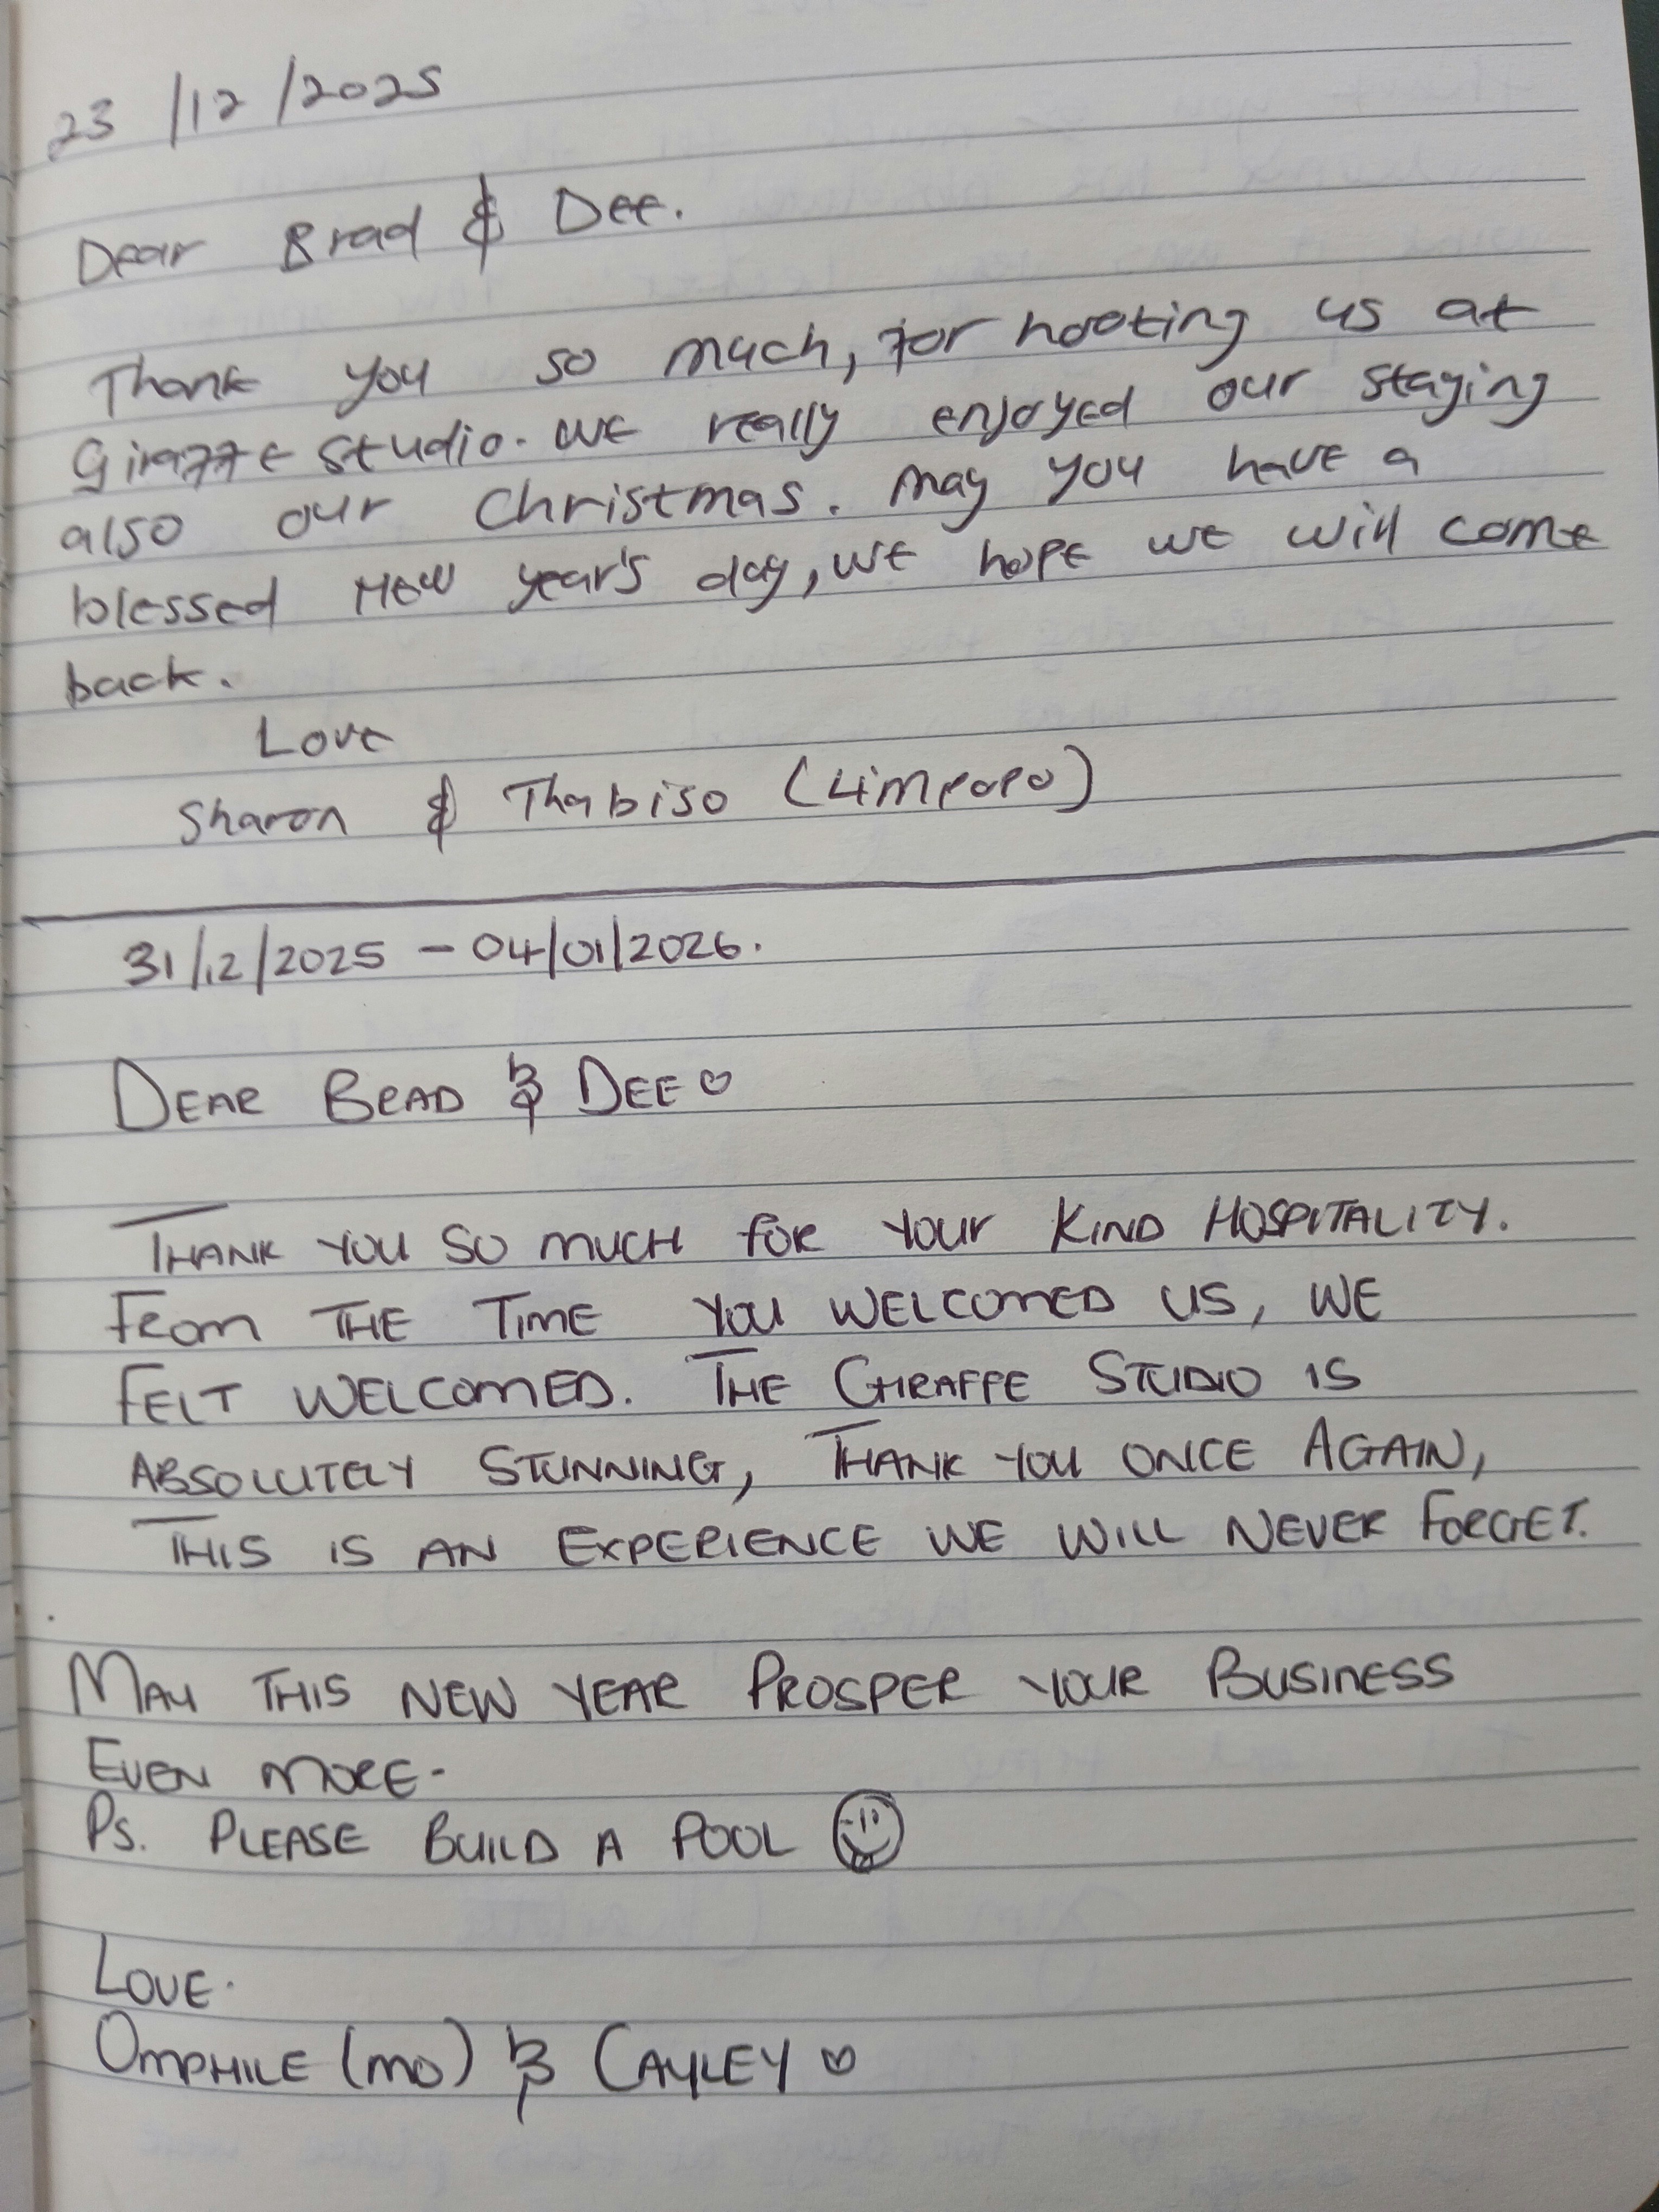 23/12/2025
Dear Brad & Dee.
Thank you so much, for hosting us at
Giraffe Studio. We really enjoyed our staying
also our Christmas. May you have a
blessed New year's day, we hope we will come
back.
Love
Sharon & Thabiso (Limpopo)
31/12/2025 - 04/01/2026.
DEAR BRAD & DEE ♡
THANK YOU SO MUCH FOR YOUR KIND HOSPITALITY.
FROM THE TIME YOU WELCOMED US, WE
FELT WELCOMED. THE GIRAFFE STUDIO IS
ABSOLUTELY STUNNING, THANK YOU ONCE AGAIN,
THIS IS AN EXPERIENCE WE WILL NEVER FORGET.
MAY THIS NEW YEAR PROSPER YOUR BUSINESS
EVEN MORE.
PS. PLEASE BUILD A POOL
LOVE.
OMPHILE (MO) & CAYLEY ♡